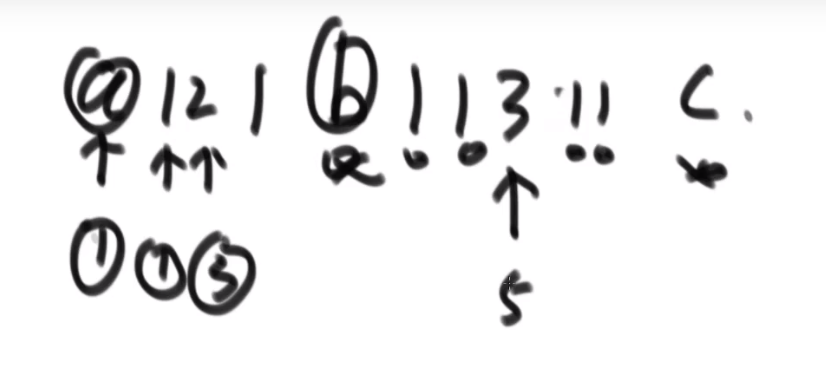 a 1 2 1 b 1 1 3 1 1 c .
1 1 3
5